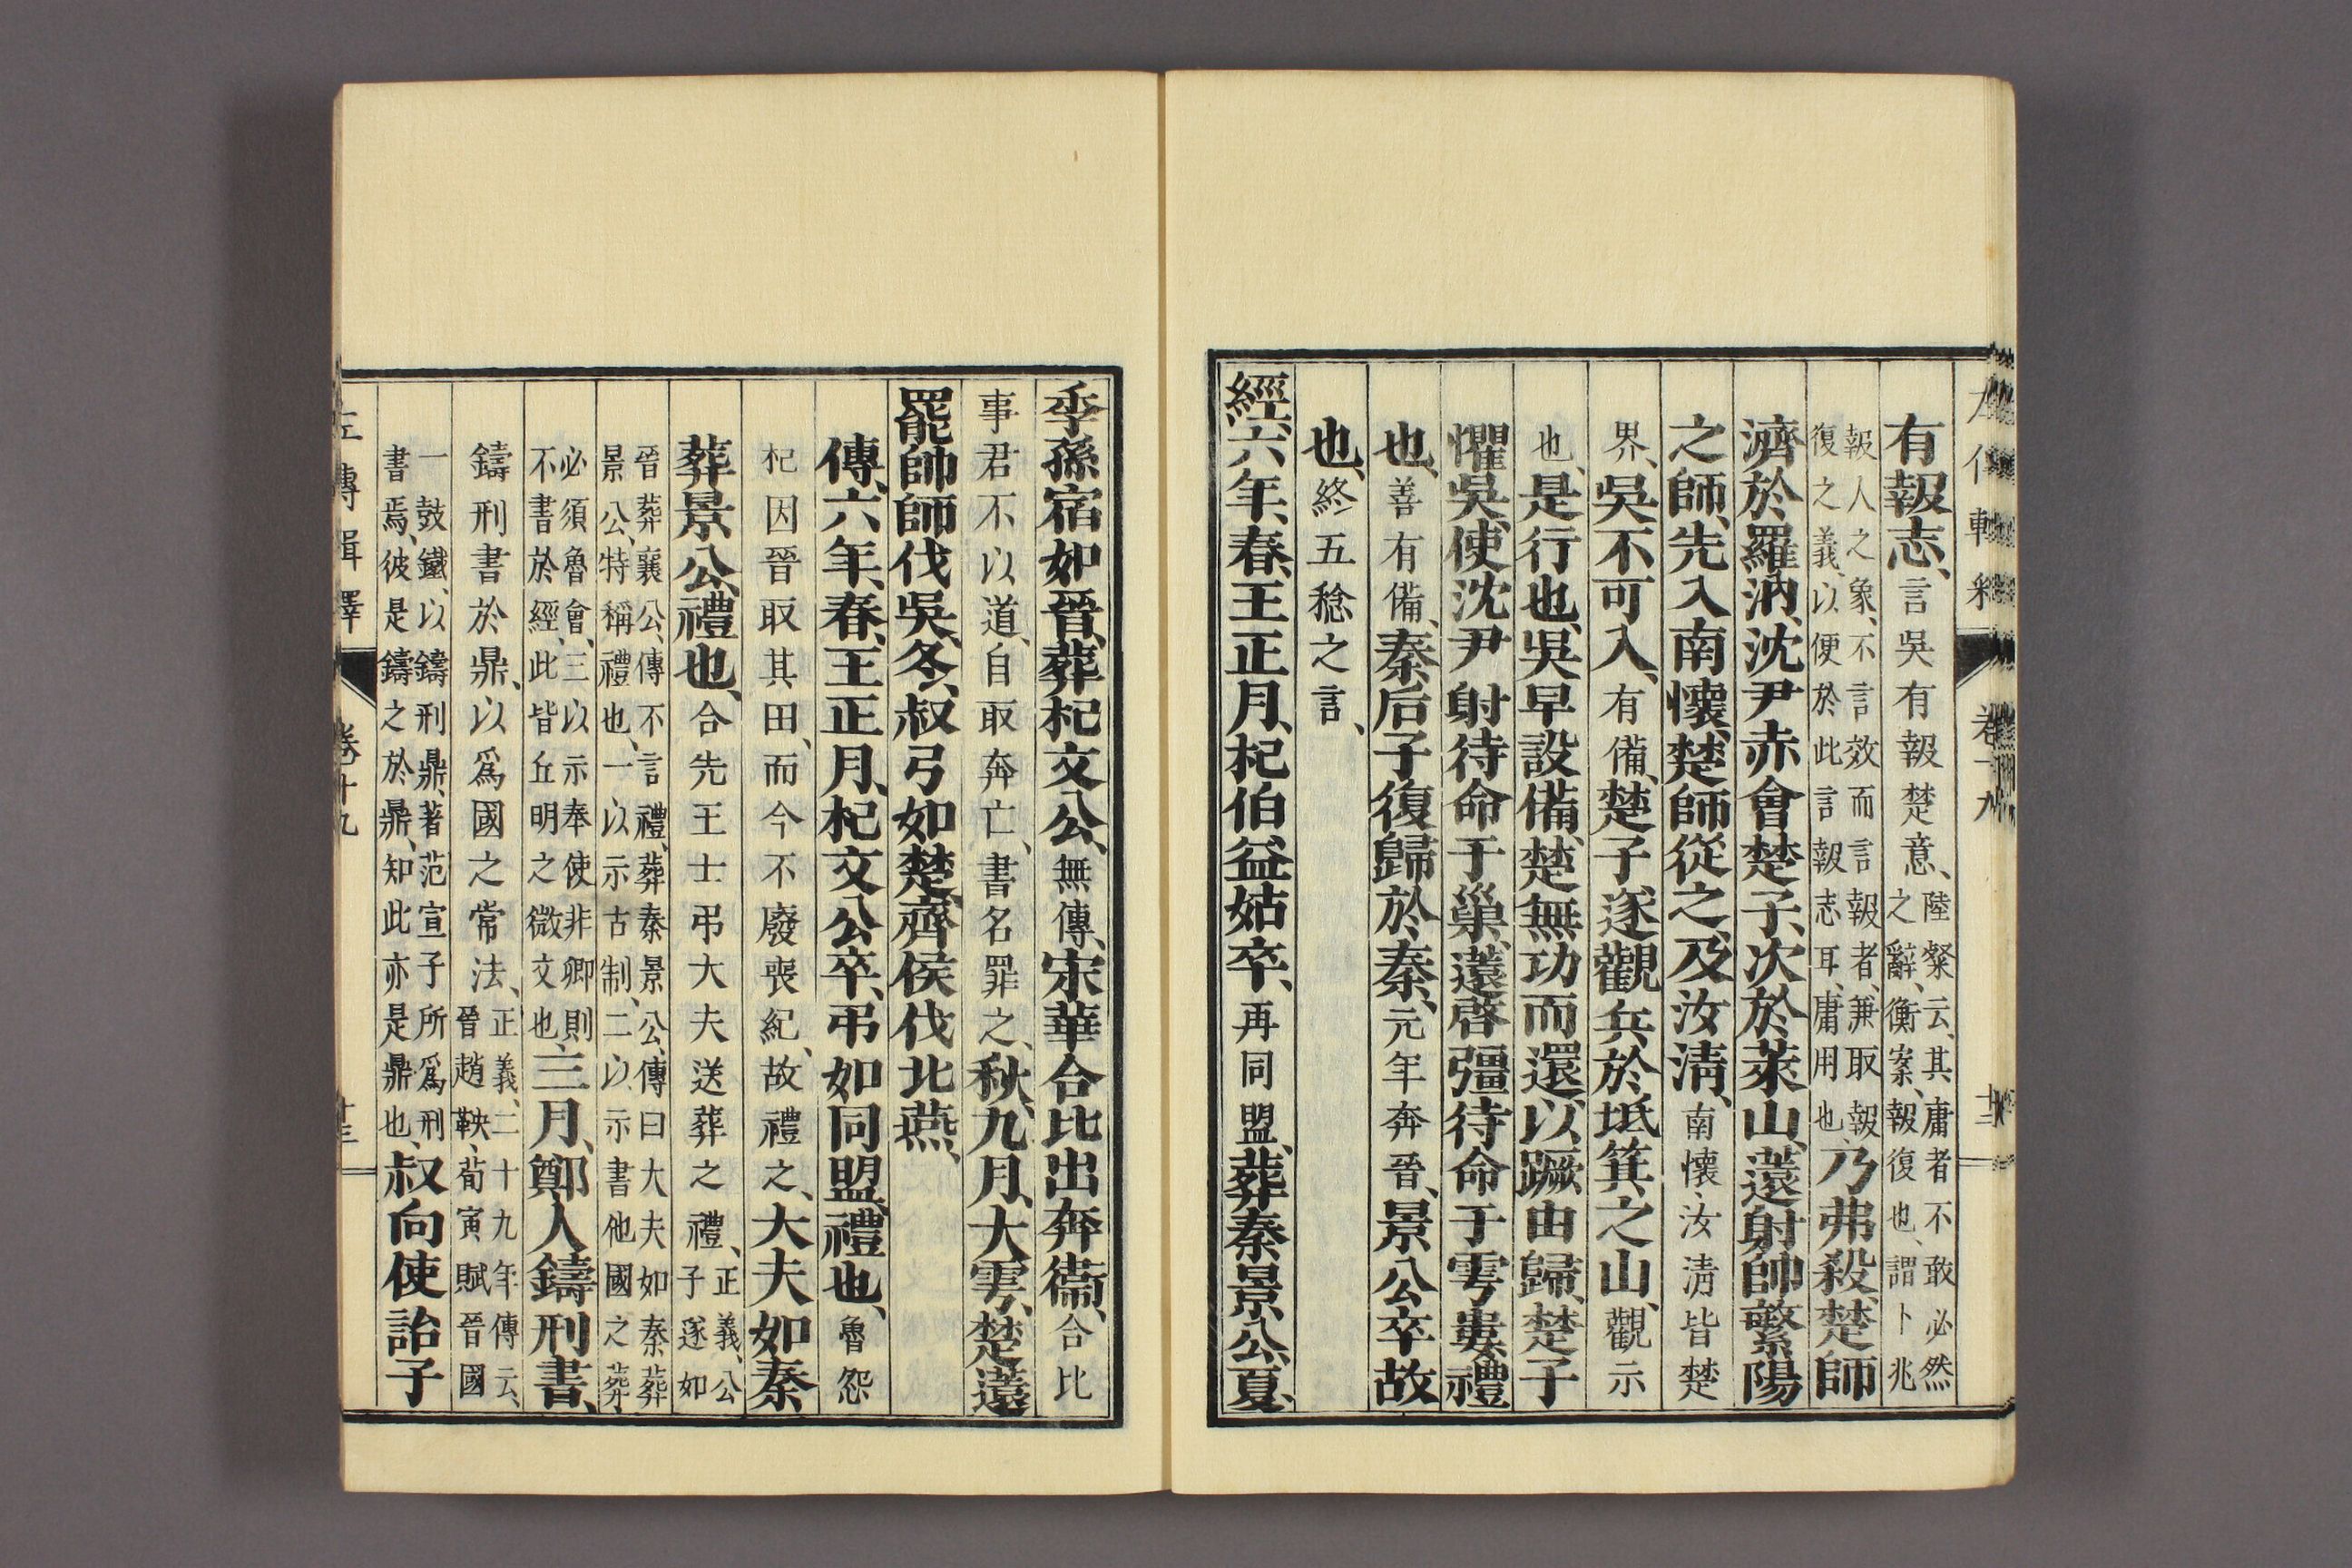 有報志、言吳有報楚意、陸粲云、其庸者不敢必然
之辭、衡案、報復也、謂卜兆
報人之象、不言效而言報者、兼取報
復之義、以便於此言報志耳、庸用也、乃弗殺、楚師
濟於羅汭、沈尹赤會楚子、次於萊山、薳射帥繁陽
之師、先入南懷、楚師從之、及汝淸、南懷、汝淸皆楚
界、吳不可入、有備、楚子遂觀兵於坻箕之山、觀示
也、是行也、吳早設備、楚無功而還、以蹶由歸、楚子
懼吳、使沈尹射待命于巢、薳啓彊待命于雩婁、禮
也、善有備、秦后子復歸於秦、元年奔晉、景公卒故
也、終五稔之言、
經、六年、春、王正月、杞伯益姑卒、再同盟、葬秦景公、夏、
季孫宿如晉、葬杞文公、無傳、宋華合比出奔衞、合比
事君不以道、自取奔亡、書名罪之、秋、九月、大雩、楚薳
罷帥師伐吳、冬、叔弓如楚、齊侯伐北燕、
傳、六年、春、王正月、杞文公卒、弔如同盟、禮也、魯怨
杞因晉取其田、而今不廢喪紀、故禮之、大夫如秦
葬景公、禮也、合先王士弔大夫送葬之禮、正義、公
子遂如
晉葬襄公、傳不言禮、葬秦景公、傳曰大夫如秦葬
景公、特稱禮也、一以示古制、二以示書他國之葬、
必須魯會、三以示奉使非卿則
不書於經、此皆丘明之微文也、三月、鄭人鑄刑書、
鑄刑書於鼎、以爲國之常法、正義、二十九年傳云、
晉趙鞅、荀寅賦晉國
一鼓鐵、以鑄刑鼎、著范宣子所爲刑
書焉、彼是鑄之於鼎、知此亦是鼎也、叔向使詒子
左傳輯釋 卷十九 十三